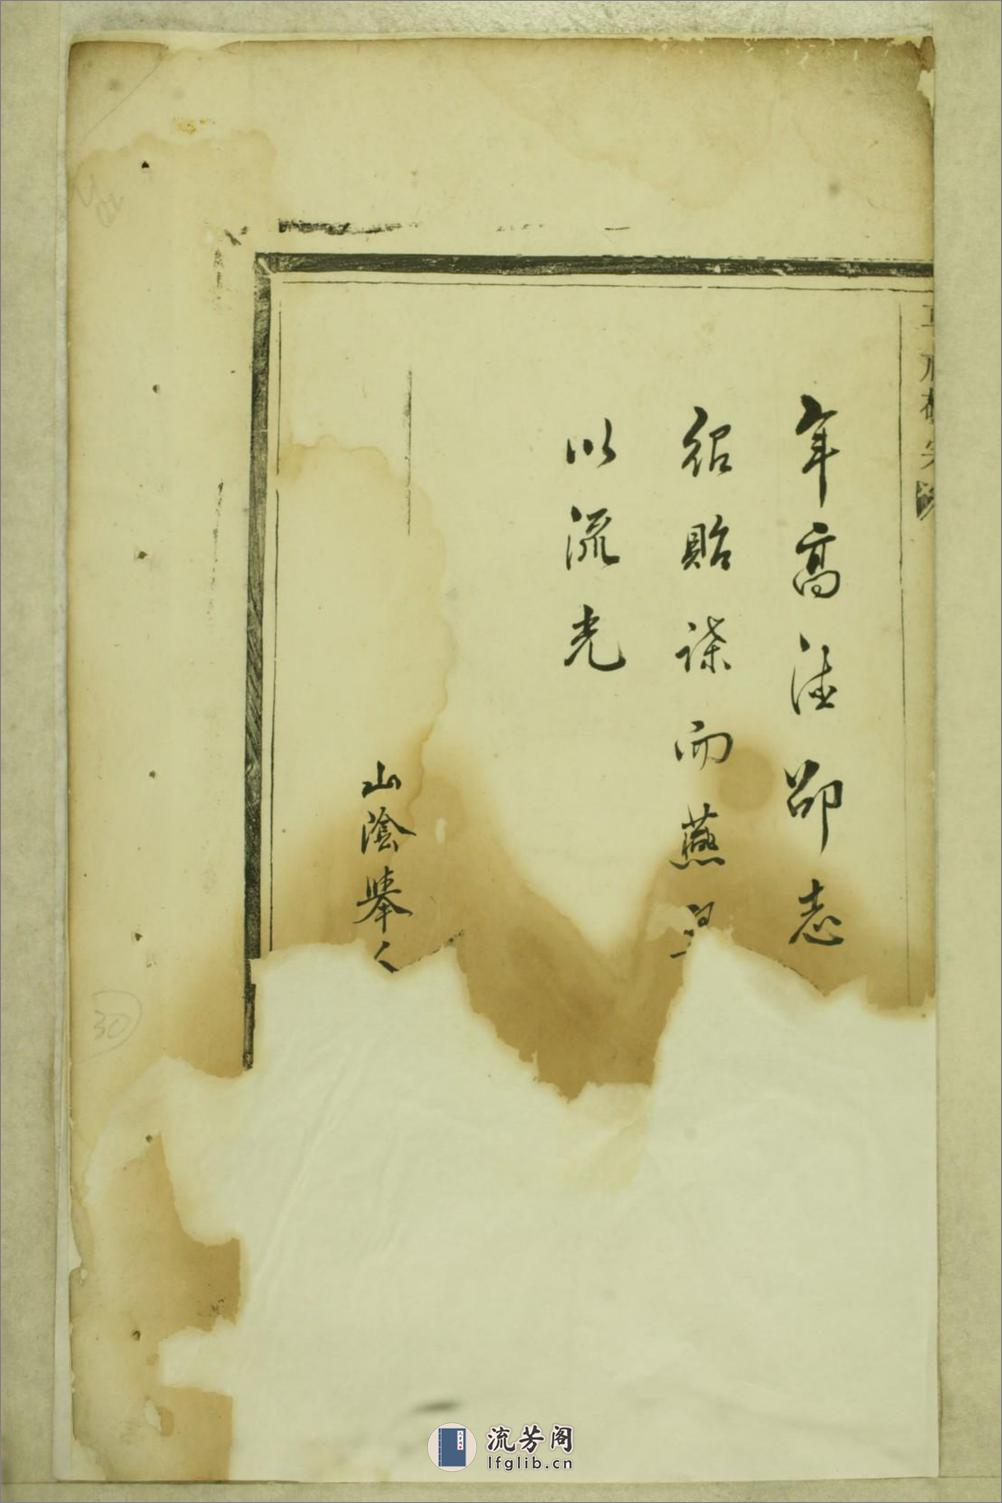 年高德邵志
紹貽謀而燕
以流光
山陰舉人
流芳阁
lfglib.cn